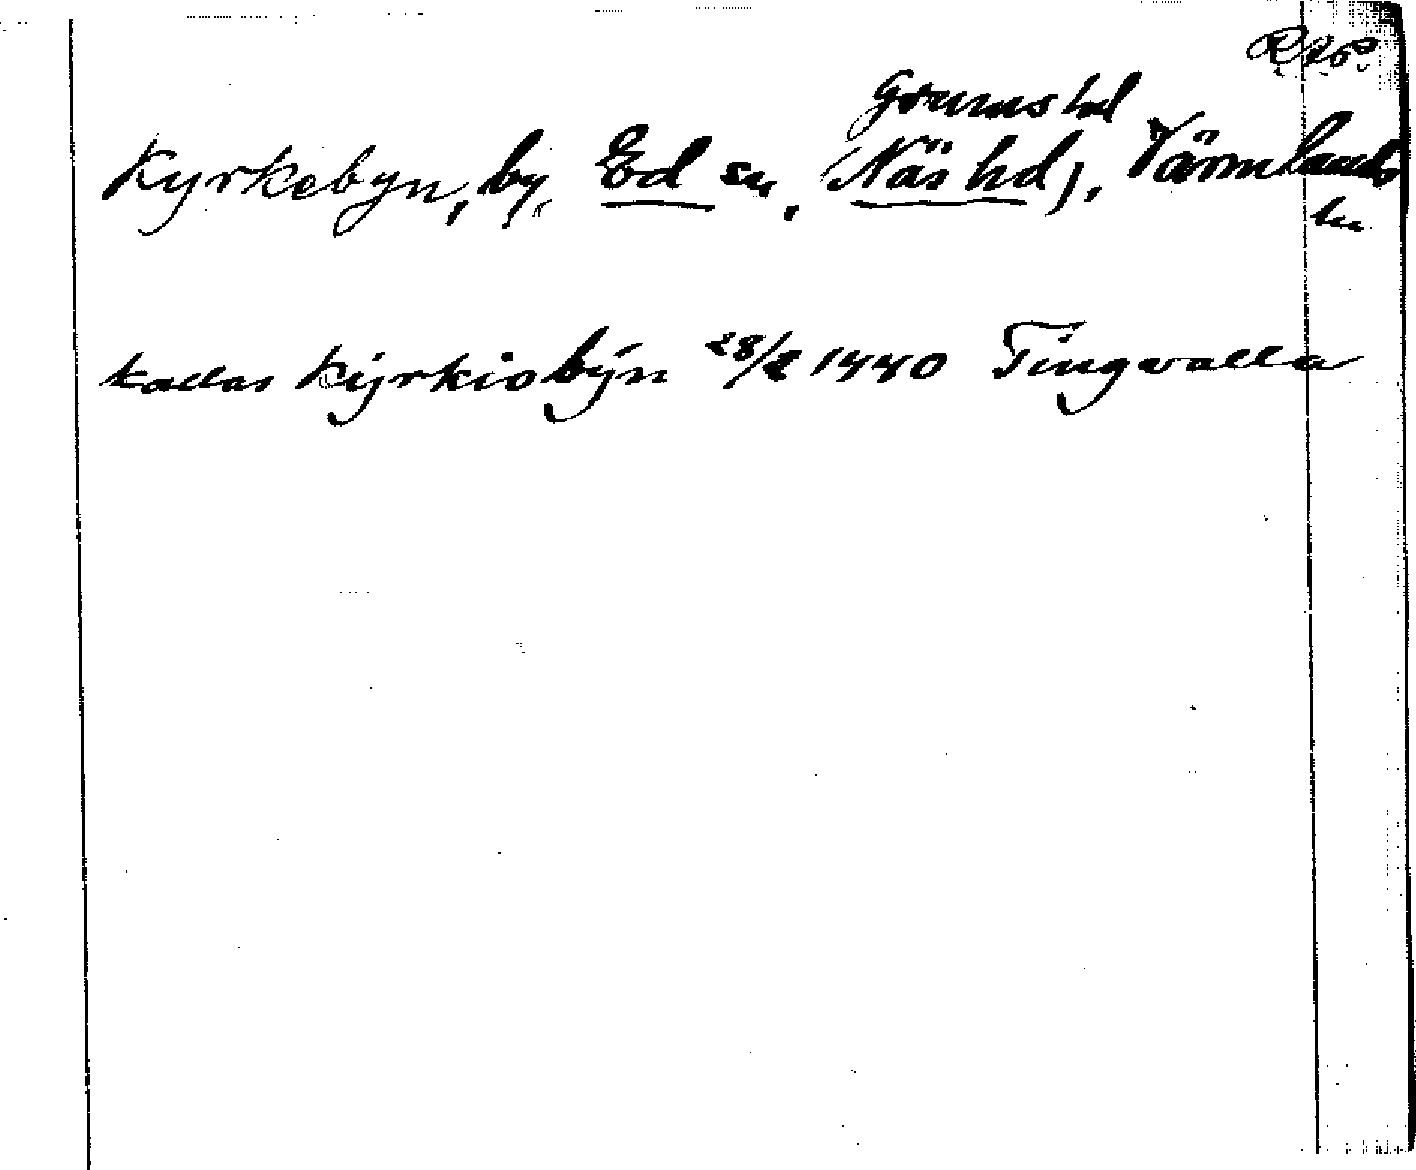 R.A.P.
Grums hd
Kyrkebyn, by, Ed sn, (Näs hd), Värmlands
ln
kallas Kyrkiobyn 28/2 1440 Tingvalla